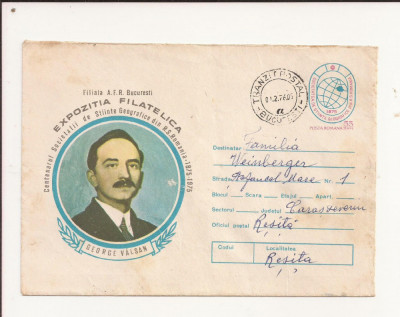 Filiala A.F.R. Bucuresti
EXPOZITIA FILATELICA
Centenarul Societatii de Stiinte Geografice din R.S. Romania-1875-1975
GEORGE VÂLSAN
TRANZIT POSTAL
BUCURESTI
55
Destinatar Familia
Weinberger
Strada Ștefan cel Mare Nr. 1
Blocul Scara Etajul Apart.
Sectorul Judetul Caras Severin
Oficiul postal Resița
Codul Localitatea
Resița